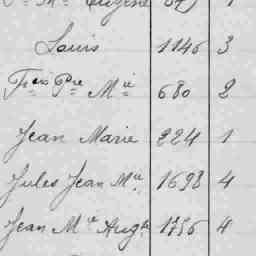 Eugène
Louis 1146 3
Fçois Pre Mie 680 2
Jean Marie 224 1
Jules Jean Mie 1698 4
Jean Mie Augte 1756 4